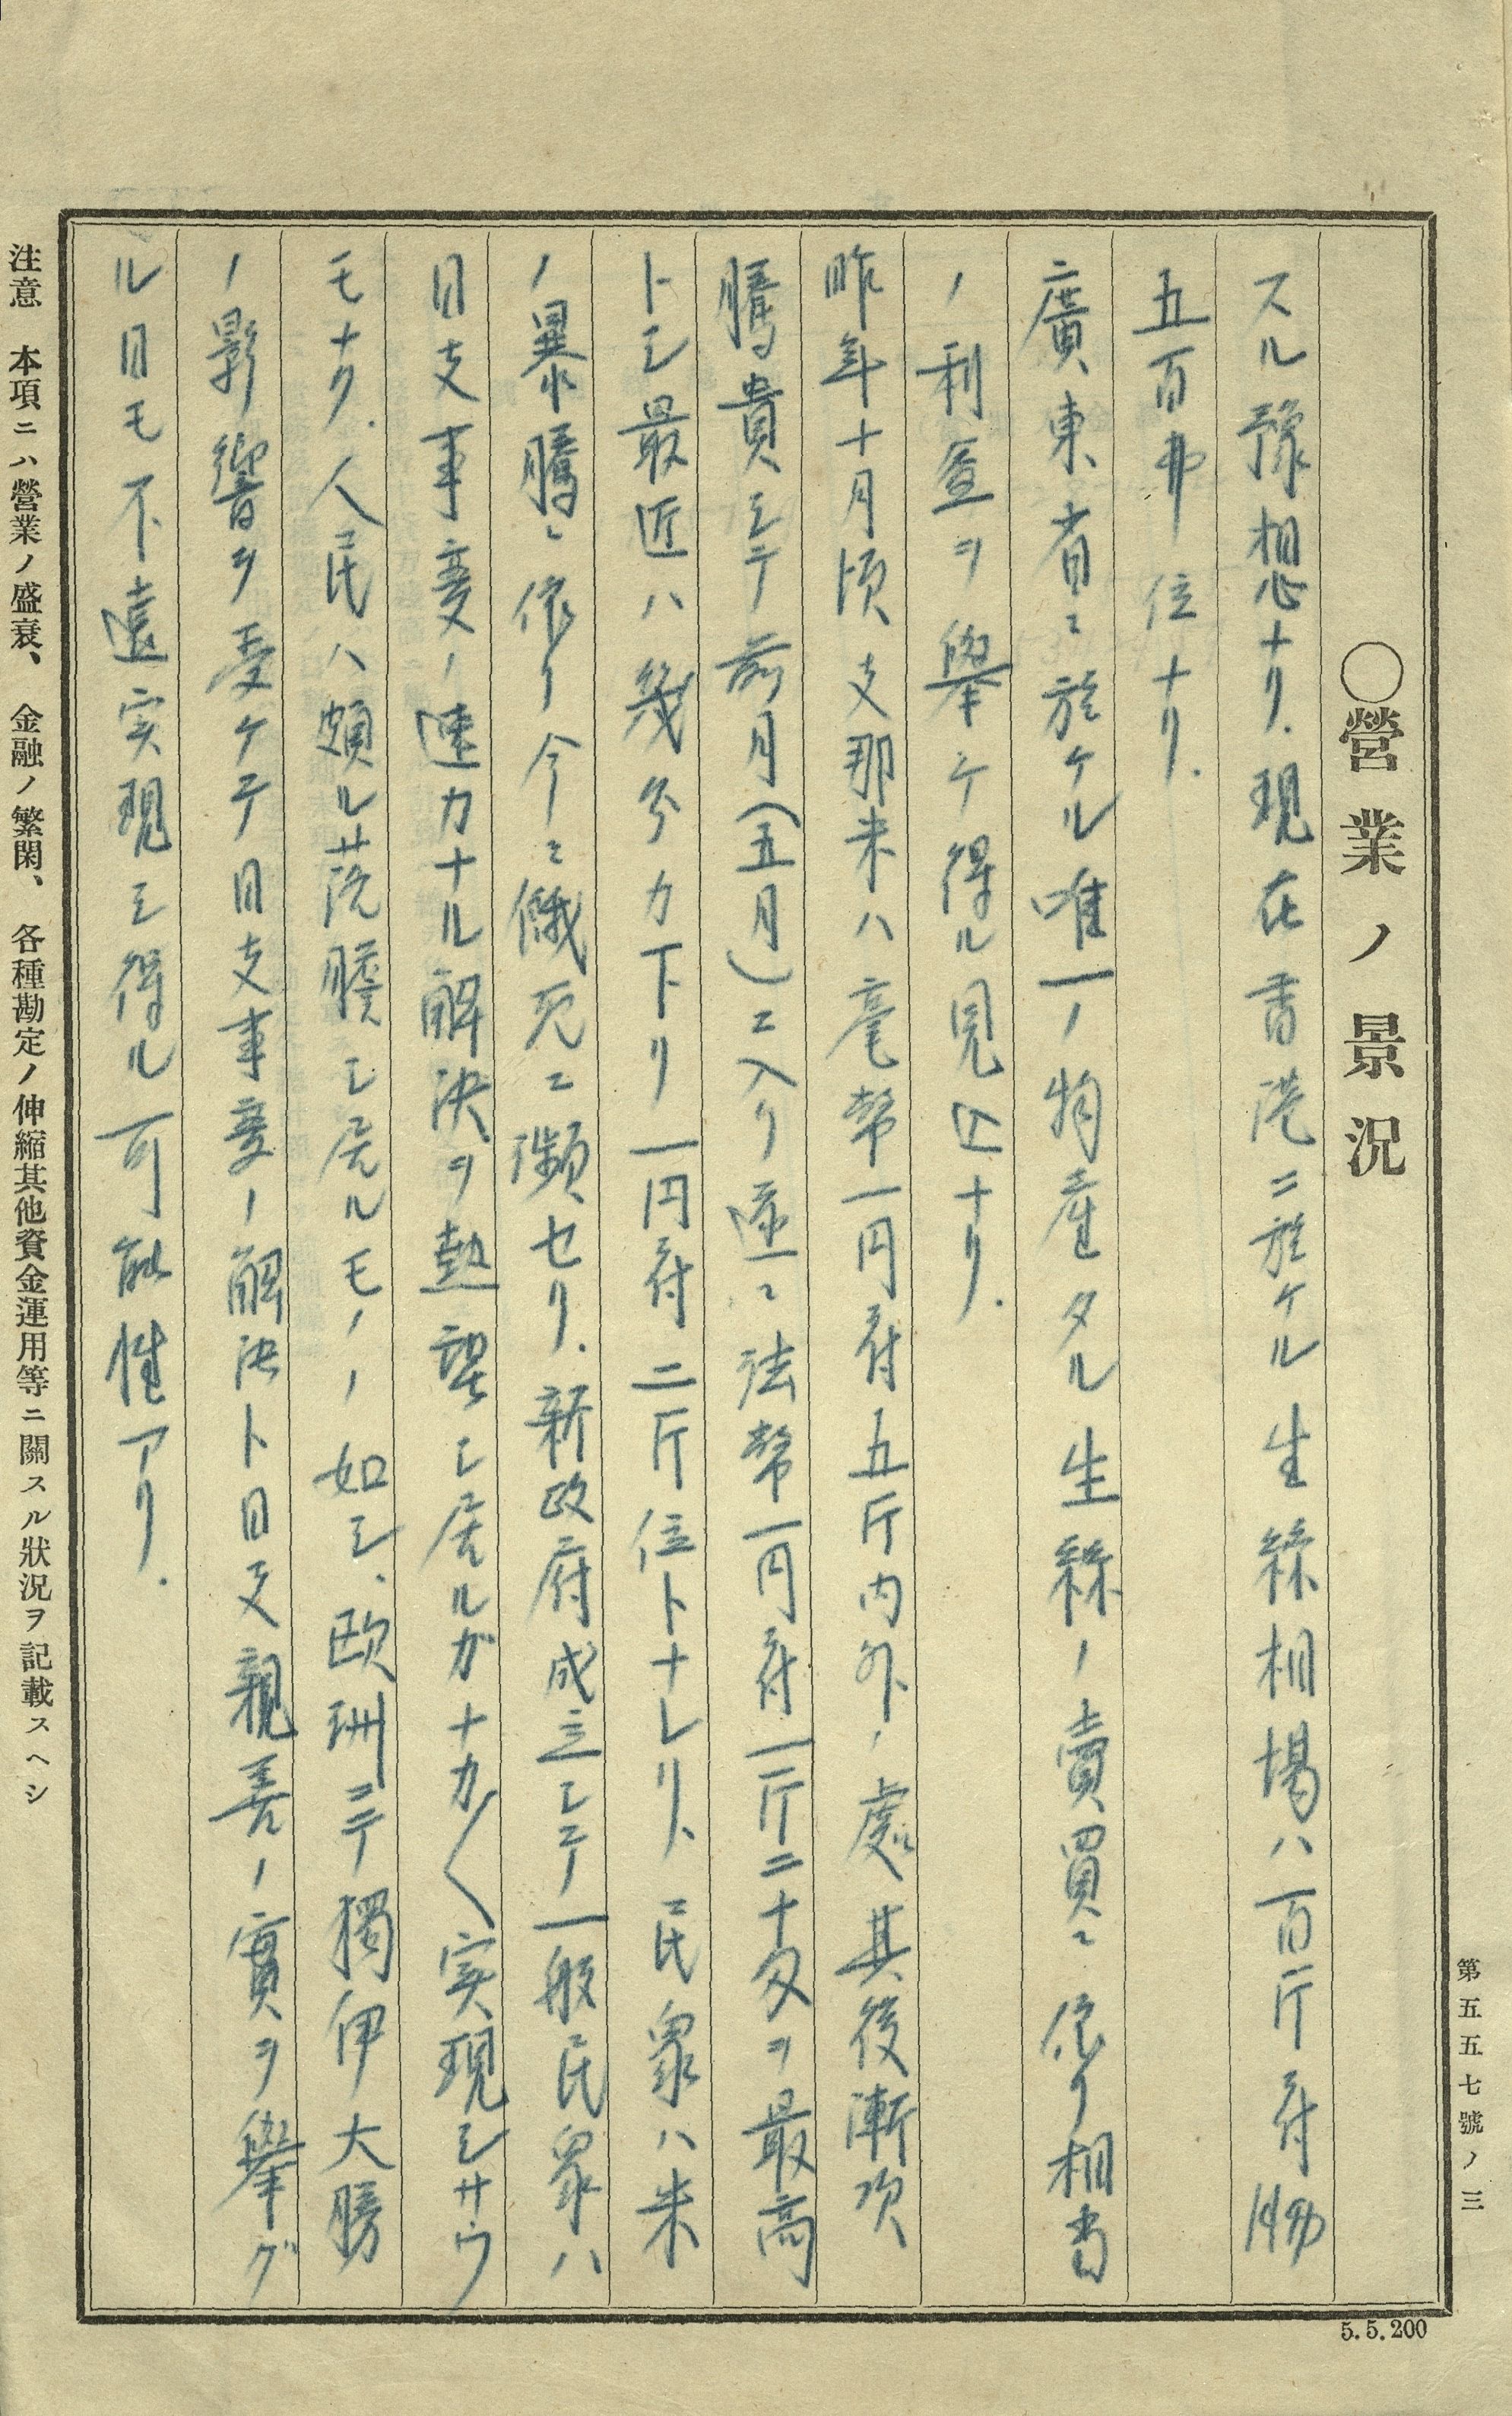 第五五七號ノ三
◯營業ノ景況
スル豫想ナリ.現在香港ニ於ケル生絲相場ハ一百斤ニ付
五百弗位ナリ.
廣東省ニ於ケル唯一ノ物産タル生絲ノ賣買ニ依リ相当
ノ利益ヲ擧ケ得ル見込ナリ.
昨年十月頃支那米ハ毫幣一円ニ付五斤内外ノ處其後漸次
騰貴シテ前月(五月)ニ入リ遂ニ法幣一円ニ付一斤二十匁ヲ最高
トシ最近ハ幾分カ下リ一円ニ付二斤位トナレリ、民衆ハ米
ノ暴騰ニ依リ今ニ餓死ニ瀕セリ.新政府成立シテ一般民衆ハ
日支事変ノ速カナル解決ヲ熱望シ居ルガナカ〱実現シサウ
モナク.人民ハ頗ル落膽シ居ルモノノ如シ、欧洲ニテ獨伊大勝
ノ影響ヲ受ケテ日支事変ノ解決ト日支親善ノ實ヲ擧グ
ル日モ不遠実現シ得ル可能性アリ.
注意 本項ニハ營業ノ盛衰、金融ノ繁閑、各種勘定ノ伸縮其他資金運用等ニ關スル狀況ヲ記載スヘシ
5.5.200